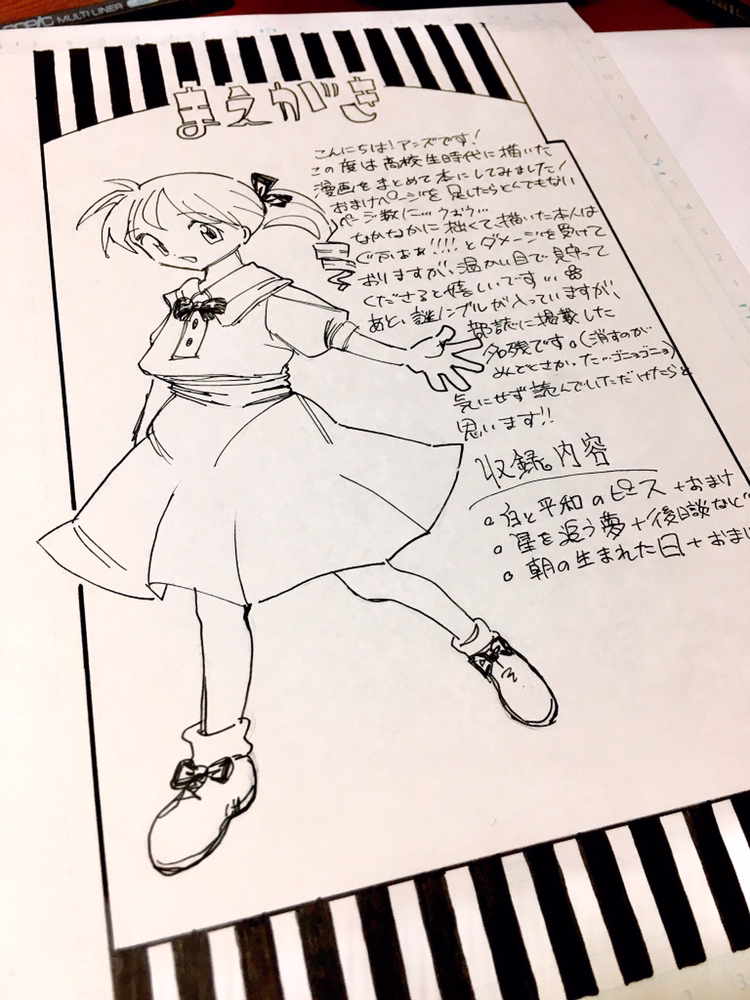 MULTI LINER
まえがき
こんにちは!アンズです!
この度は高校生時代に描いた
漫画をまとめて本にしてみました!
おまけページを足したらとんでもない
ページ数に…うおぅ…
なかなかに拙くて、描いた本人は
ぐふぁぁ!!!!とダメージを受けて
おりますが、温かい目で見守って
くださると嬉しいです…
あと、謎ノンブルが入っていますが、
部誌に掲載した
名残です。(消すのが
めんどくさかった…ゴニョゴニョ)
気にせず読んでいただけたらと
思います!!
収録内容
○白と平和のピース+おまけ
○星を追う夢+後日談など
○朝の生まれた日+おまけ